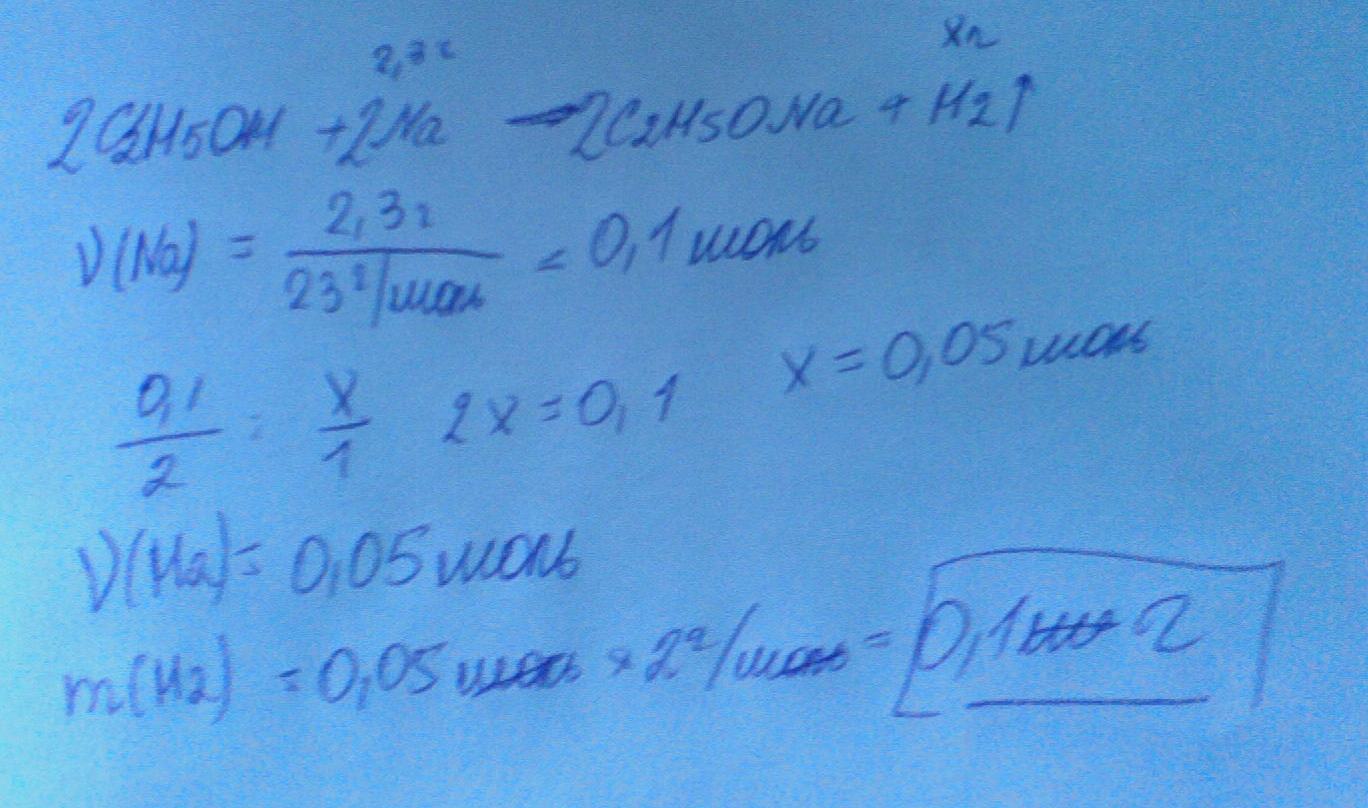 2,3г xг
2C2H5OH + 2Na → 2C2H5ONa + H2↑
ν(Na) = 2,3г / 23 г/моль = 0,1 моль
0,1/2 = x/1 2x = 0,1 x = 0,05 моль
ν(H2) = 0,05 моль
m(H2) = 0,05 моль × 2 г/моль = 0,1 г